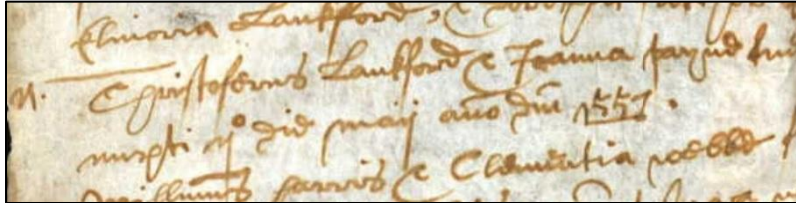 Elinoria Lankford, &
n. Christoferus Lankford & Joanna payne fue
nupti ijº die maij año dñi 1551.
Willimus Harris & Clementia webbe